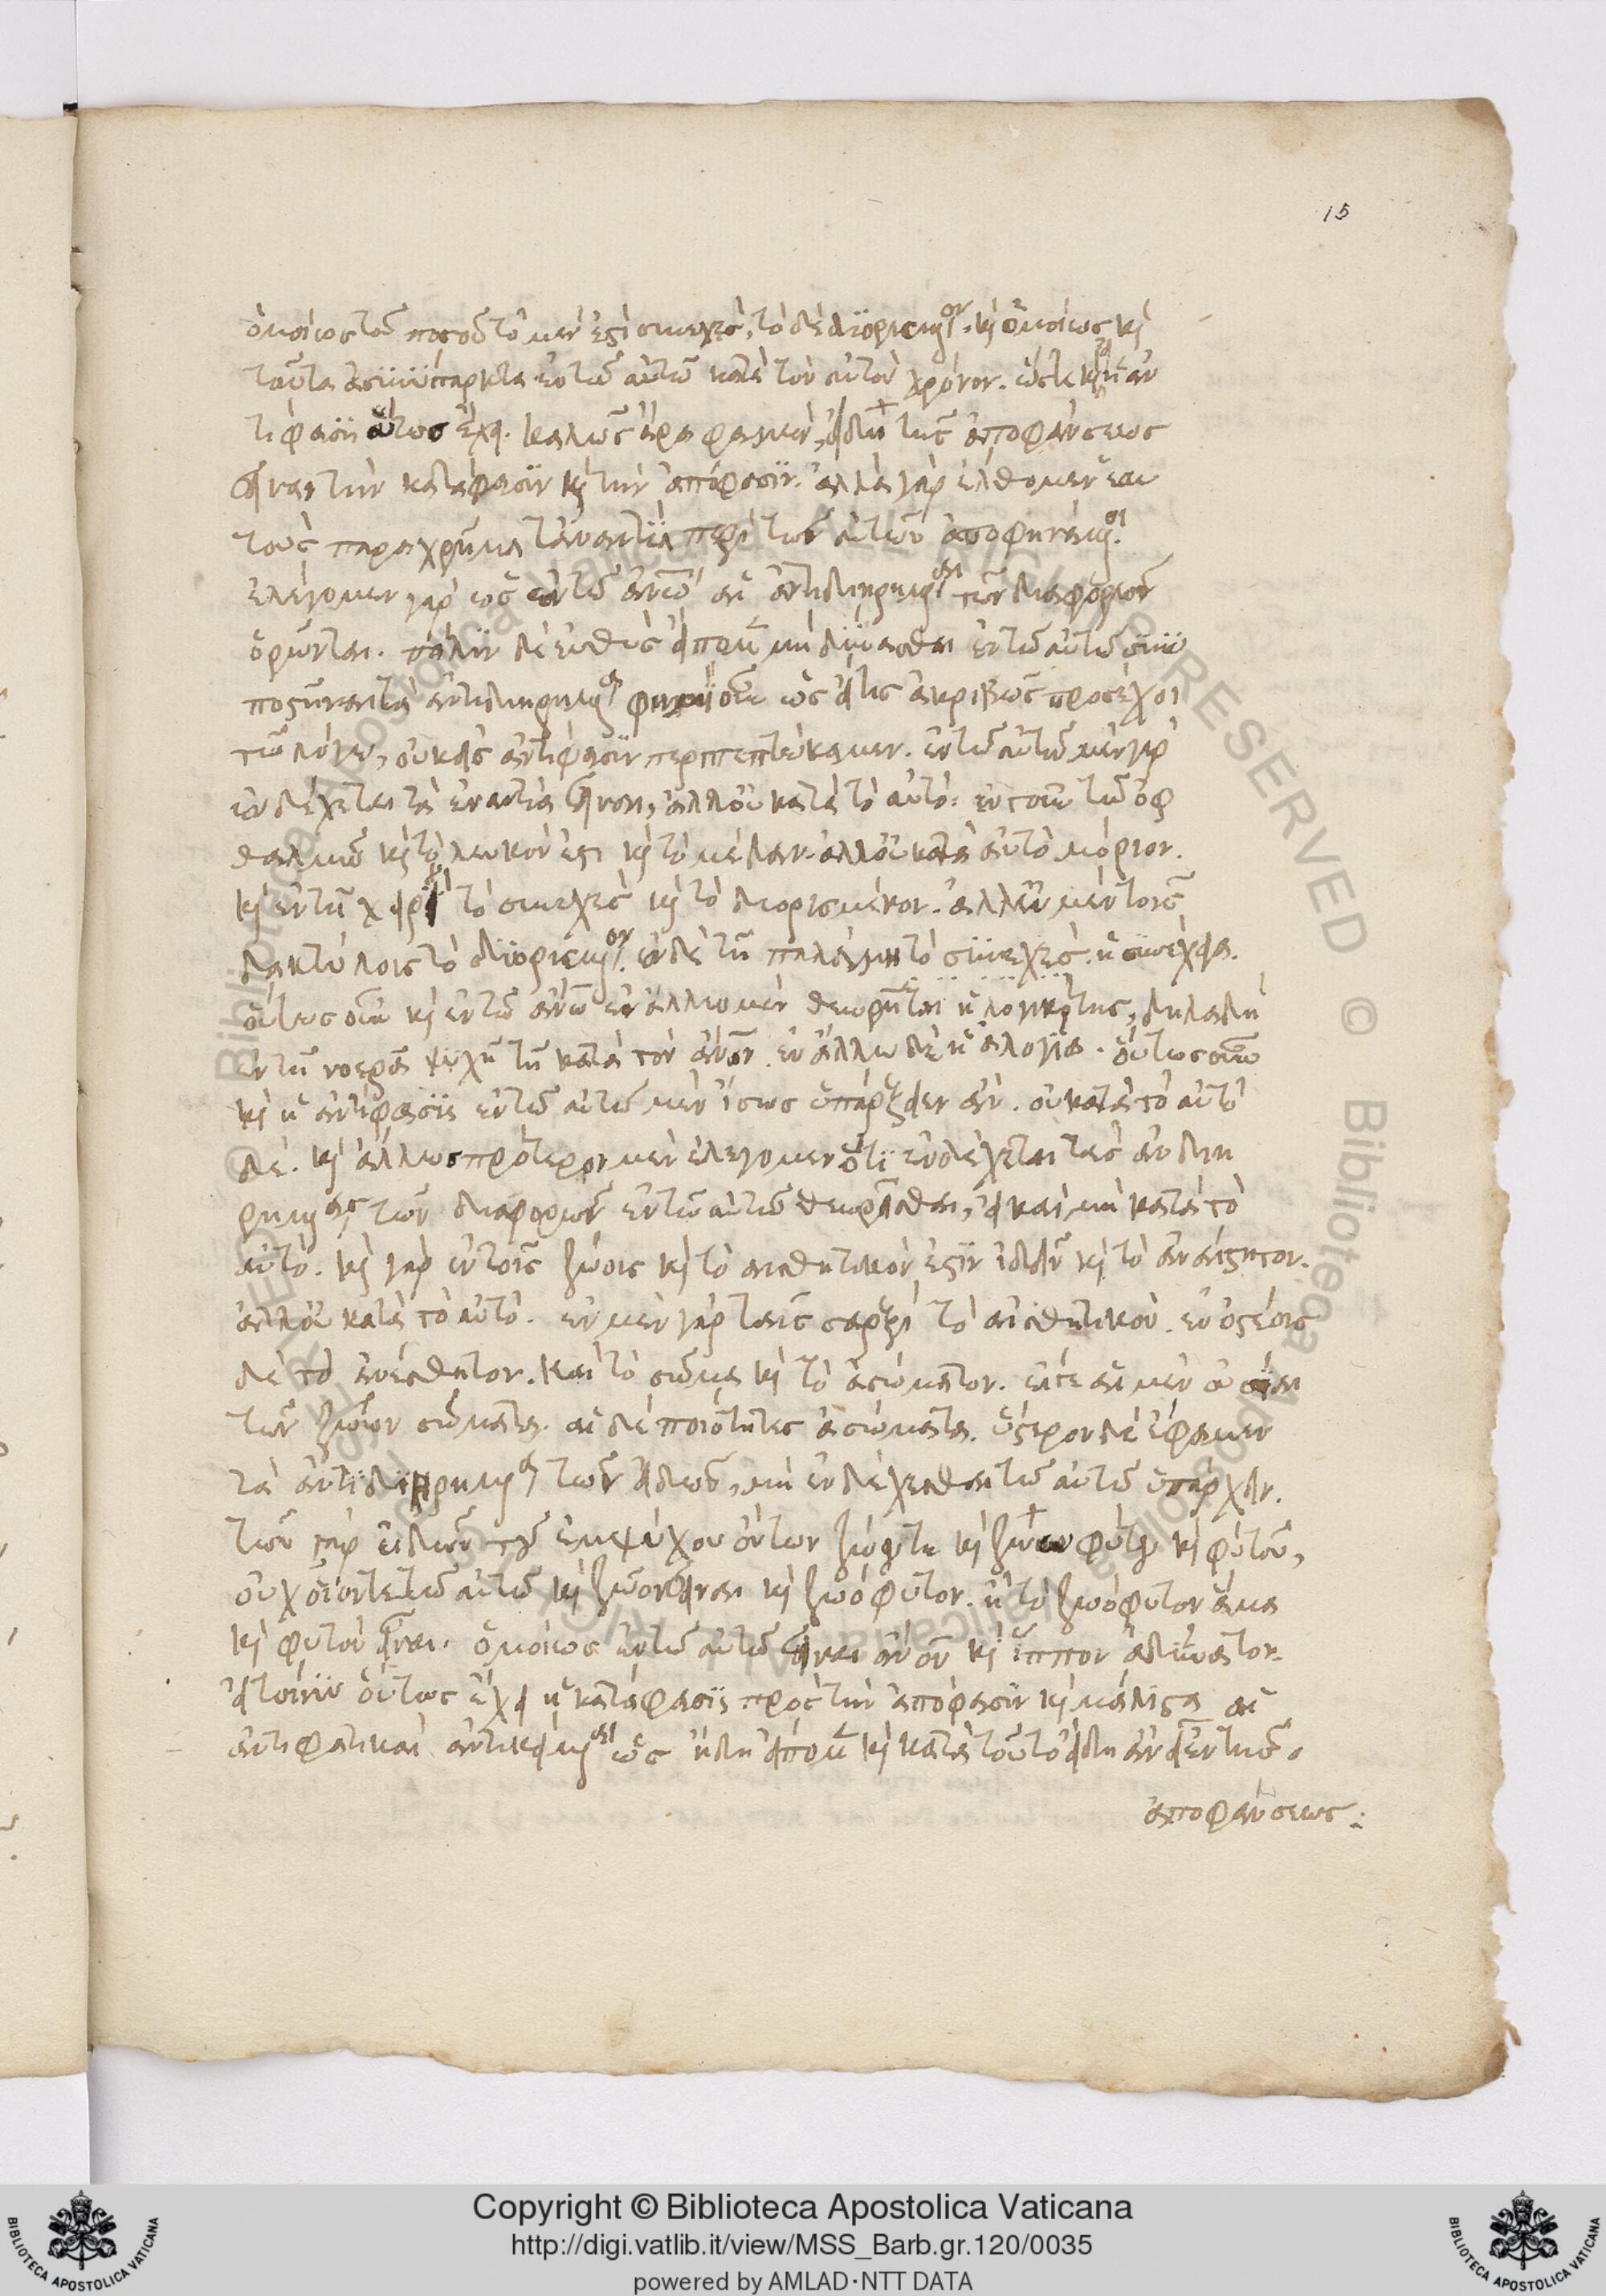 15
ὁμοίως τοῦ ποσοῦ τὸ μέν ἐστι συνεχὲς, τὸ δὲ διορισμένον. καὶ ὁμοίως καὶ
ταῦτα ἀσυνύπαρκτα ἐν τῷ αὐτῷ κατὰ τὸν αὐτὸν χρόνον. ὥστε καὶ ἡ ἀν
τίφασις οὕτως ἔχει. καλῶς ἄρα φαμὲν, εἴδη τῆς ἀποφάνσεως
εἶναι τὴν κατάφασιν καὶ τὴν ἀπόφασιν. ἀλλὰ γὰρ ἐλάθομεν ἑαυ
τοὺς παραχρῆμα τἀναντία περὶ τῶν αὐτῶν ἀποφηνάμενοι.
ἐλέγομεν γὰρ ὡς ἐν τῷ ἀνῷ αἱ ἀντιδιῃρημέναι τῶν διαφορῶν
ὁρῶνται. πάλιν δὲ εὐθὺς εἴπομεν μὴ δύνασθαι ἐν τῷ αὐτῷ συνυ
ποστῆναι τὰ ἀντιδιῃρημένα φημὶ οὖν ὡς εἴ τις ἀκριβῶς προσέχοι
τῷ λόγῳ, οὐκ εἰς ἀντίφασιν περιπεπτώκαμεν. ἐν τῷ αὐτῷ μὲν γὰρ
ἐνδέχεται τὰ ἐναντία εἶναι, ἀλλ' οὐ κατὰ τὸ αὐτό. ἐν γοῦν τῷ ὀφ
θαλμῷ καὶ τὸ λευκόν ἐστι καὶ τὸ μέλαν. ἀλλ' οὐ κατὰ αὐτὸ μόριον.
καὶ ἐν τῇ χειρὶ τὸ συνεχὲς καὶ τὸ διορισμένον. ἀλλ' ἐν μὲν τοῖς
δακτύλοις τὸ διορισμένον. ἐν δὲ τῇ παλάμῃ τὸ συνεχὲς. ἡ συνέχεια.
οὕτως οὖν καὶ ἐν τῷ ἀνῷ ἐν ἄλλῳ μὲν θεωρεῖται ἡ λογικότης, δηλαδὴ
ἐν τῇ νοερᾷ ψυχῇ τῇ κατὰ τὸν ἀνον. ἐν ἄλλῳ δὲ ἡ ἀλογία. οὕτως οὖν
καὶ ἡ ἀντίφασις ἐν τῷ αὐτῷ μὲν ἴσως ὑπάρξειεν ἄν. οὐ κατὰ τὸ αὐτὸ
δέ. καὶ ἄλλως πρότερον μὲν ἐλέγομεν ὅτι ἐνδέχεται τὰς ἀνδιῃ
ρημένας τῶν διαφορῶν ἐν τῷ αὐτῷ θεωρεῖσθαι, εἰ καὶ μὴ κατὰ τὸ
αὐτό. καὶ γὰρ ἐν τοῖς ζώοις καὶ τὸ αἰσθητικόν ἐστιν ἰδεῖν καὶ τὸ ἀναίσθητον.
ἀλλ' οὐ κατὰ τὸ αὐτό. ἐν μὲν γὰρ ταῖς σαρξὶ τὸ αἰσθητικόν. ἐν ὀστέοις
δὲ τὸ ἀναίσθητον. καὶ τὸ σῶμα καὶ τὸ ἀσώματον. εἴτε αἱ μὲν οὐσίαι
τῶν ζώων σώματα. αἱ δὲ ποιότητες ἀσώματα. ὕστερον δὲ ἔφαμεν
τὰ ἀντιδιῃρημένα τῶν εἰδῶν, μὴ ἐνδέχεσθαι τῷ αὐτῷ ὑπάρχειν.
τῶν γὰρ εἰδῶν τοῦ ἐμψύχου ὄντων ζώου τε καὶ ζωοφύτου καὶ φυτοῦ,
οὐχ οἷόν τε τῷ αὐτῷ καὶ ζῶον εἶναι καὶ ζωόφυτον. ἢ τὸ ζωόφυτον ἅμα
καὶ φυτὸν εἶναι. ὁμοίως ἐν τῷ αὐτῷ εἶναι ἀνον καὶ ἵππον ἀδύνατον.
εἰ τοίνυν οὕτως ἔχει ἡ κατάφασις πρὸς τὴν ἀπόφασιν καὶ μάλιστα αἱ
ἀντιφατικαὶ ἀντικείμεναι ὡς ἤδη εἴπομεν καὶ κατὰ τοῦτο εἴδη ἂν εἶεν τῆς
ἀποφάνσεως:
Copyright © Biblioteca Apostolica Vaticana
http://digi.vatlib.it/view/MSS_Barb.gr.120/0035
powered by AMLAD·NTT DATA